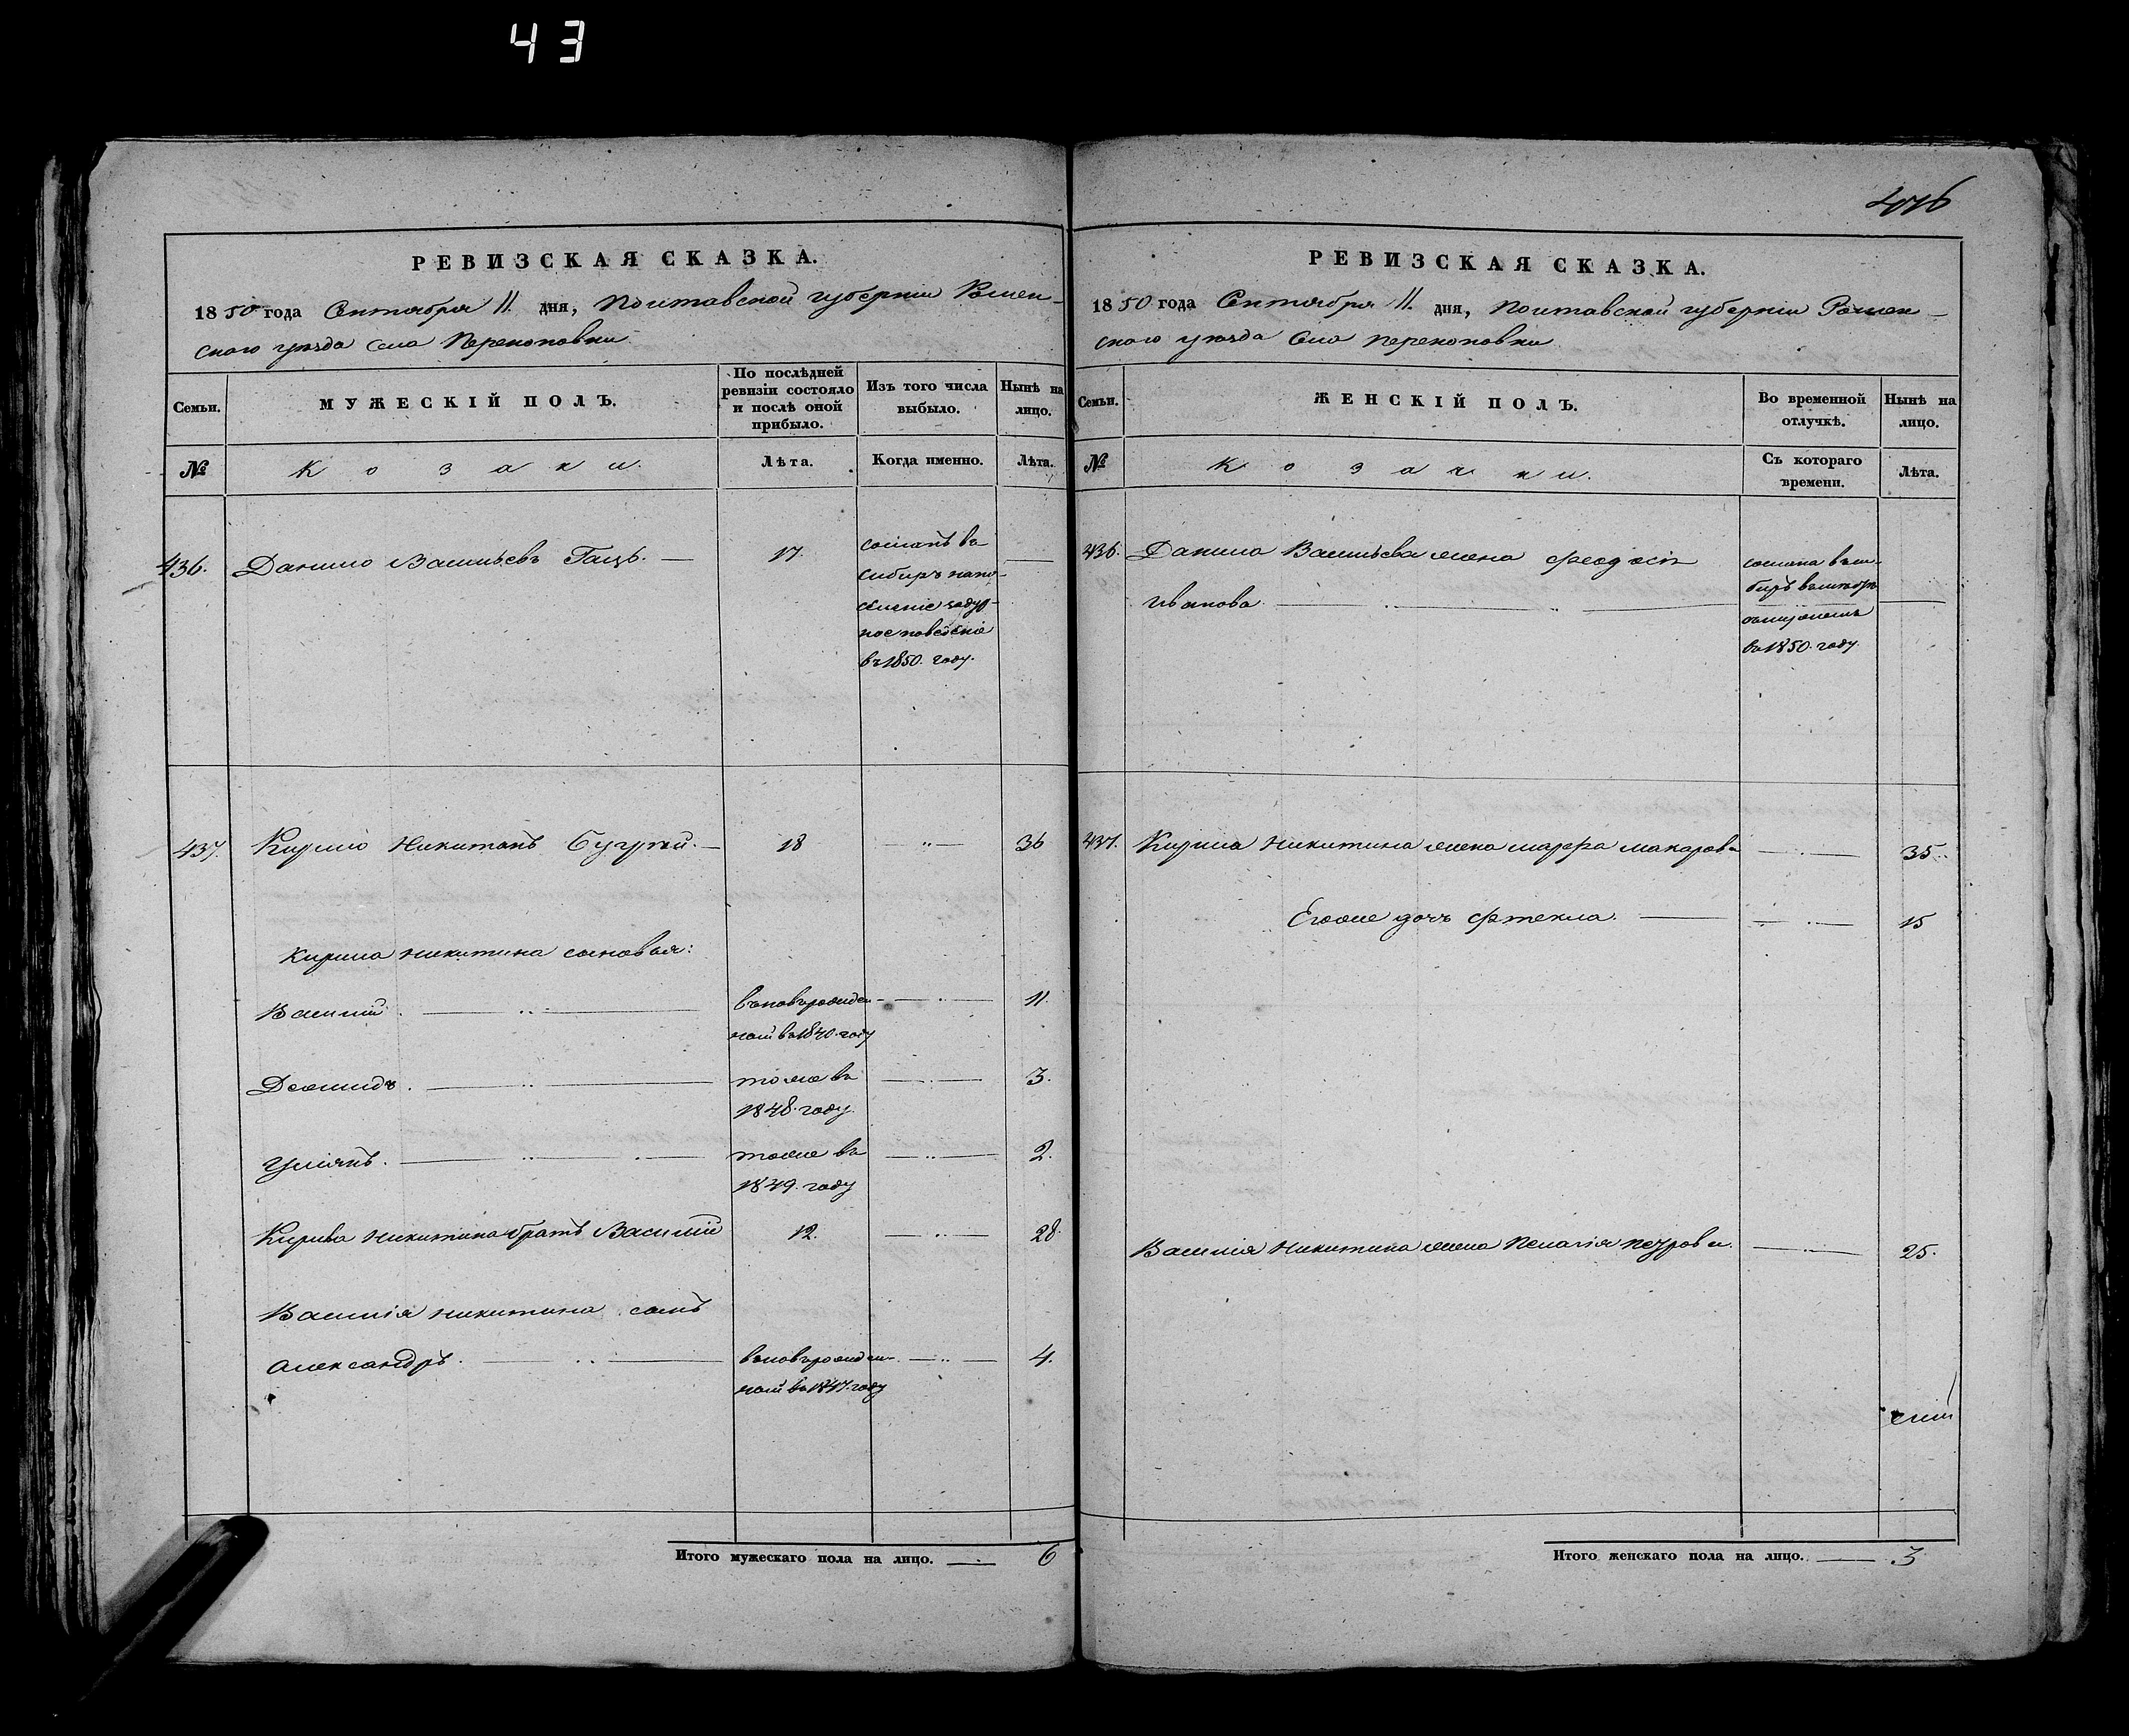 43
РЕВИЗСКАЯ СКАЗКА.
1850 года Сентября 11. дня, Полтавской губерніи Ромен-
скаго уѣзда села Перекоповки
Семьи.
МУЖЕСКІЙ ПОЛЪ.
По послѣдней
ревизіи состояло
и послѣ оной
прибыло.
Изъ того числа
выбыло.
Нынѣ на
лицо.
№
Козаки.
Лѣта.
Когда именно.
Лѣта.
436. Данило Васильевъ Гацъ. — 17. сосланъ въ —
сибирь напо-
селеніе задур-
ное поведеніе
въ 1850. году.
437. Кирило Никитинъ — 18 — 36
Кирила никитина сыновья:
Василий. — вновьрожден- — 11.
ной въ 1840. году
Демидъ. — тоже въ — 3.
1848. году
Улиянъ. — тоже въ — 2.
1849. году
Кирила никитина братъ Василий 12. — 28.
Василія никитина сынъ
александръ. — вновьрожден- — 4.
ной въ 1847. году
Итого мужескаго пола на лицо. — 6
РЕВИЗСКАЯ СКАЗКА.
1850 года Сентября 11. дня, Полтавской губерніи Ромен-
скаго уѣзда села перекоповки
Семьи.
ЖЕНСКІЙ ПОЛЪ.
Во временной
отлучкѣ.
Нынѣ на
лицо.
№
Козачки.
Съ котораго
времени.
Лѣта.
436. Данила Васильева жена феодосія сослана въси-
бирь
Иванова. —
въ 1850. году.
437. Кирила Никитина жена марфа макарова — 35.
Егоже дочь фтекла. — 15
Василія Никитина жена Пелагія петрова. — 25.
Итого женскаго пола на лицо. — 3